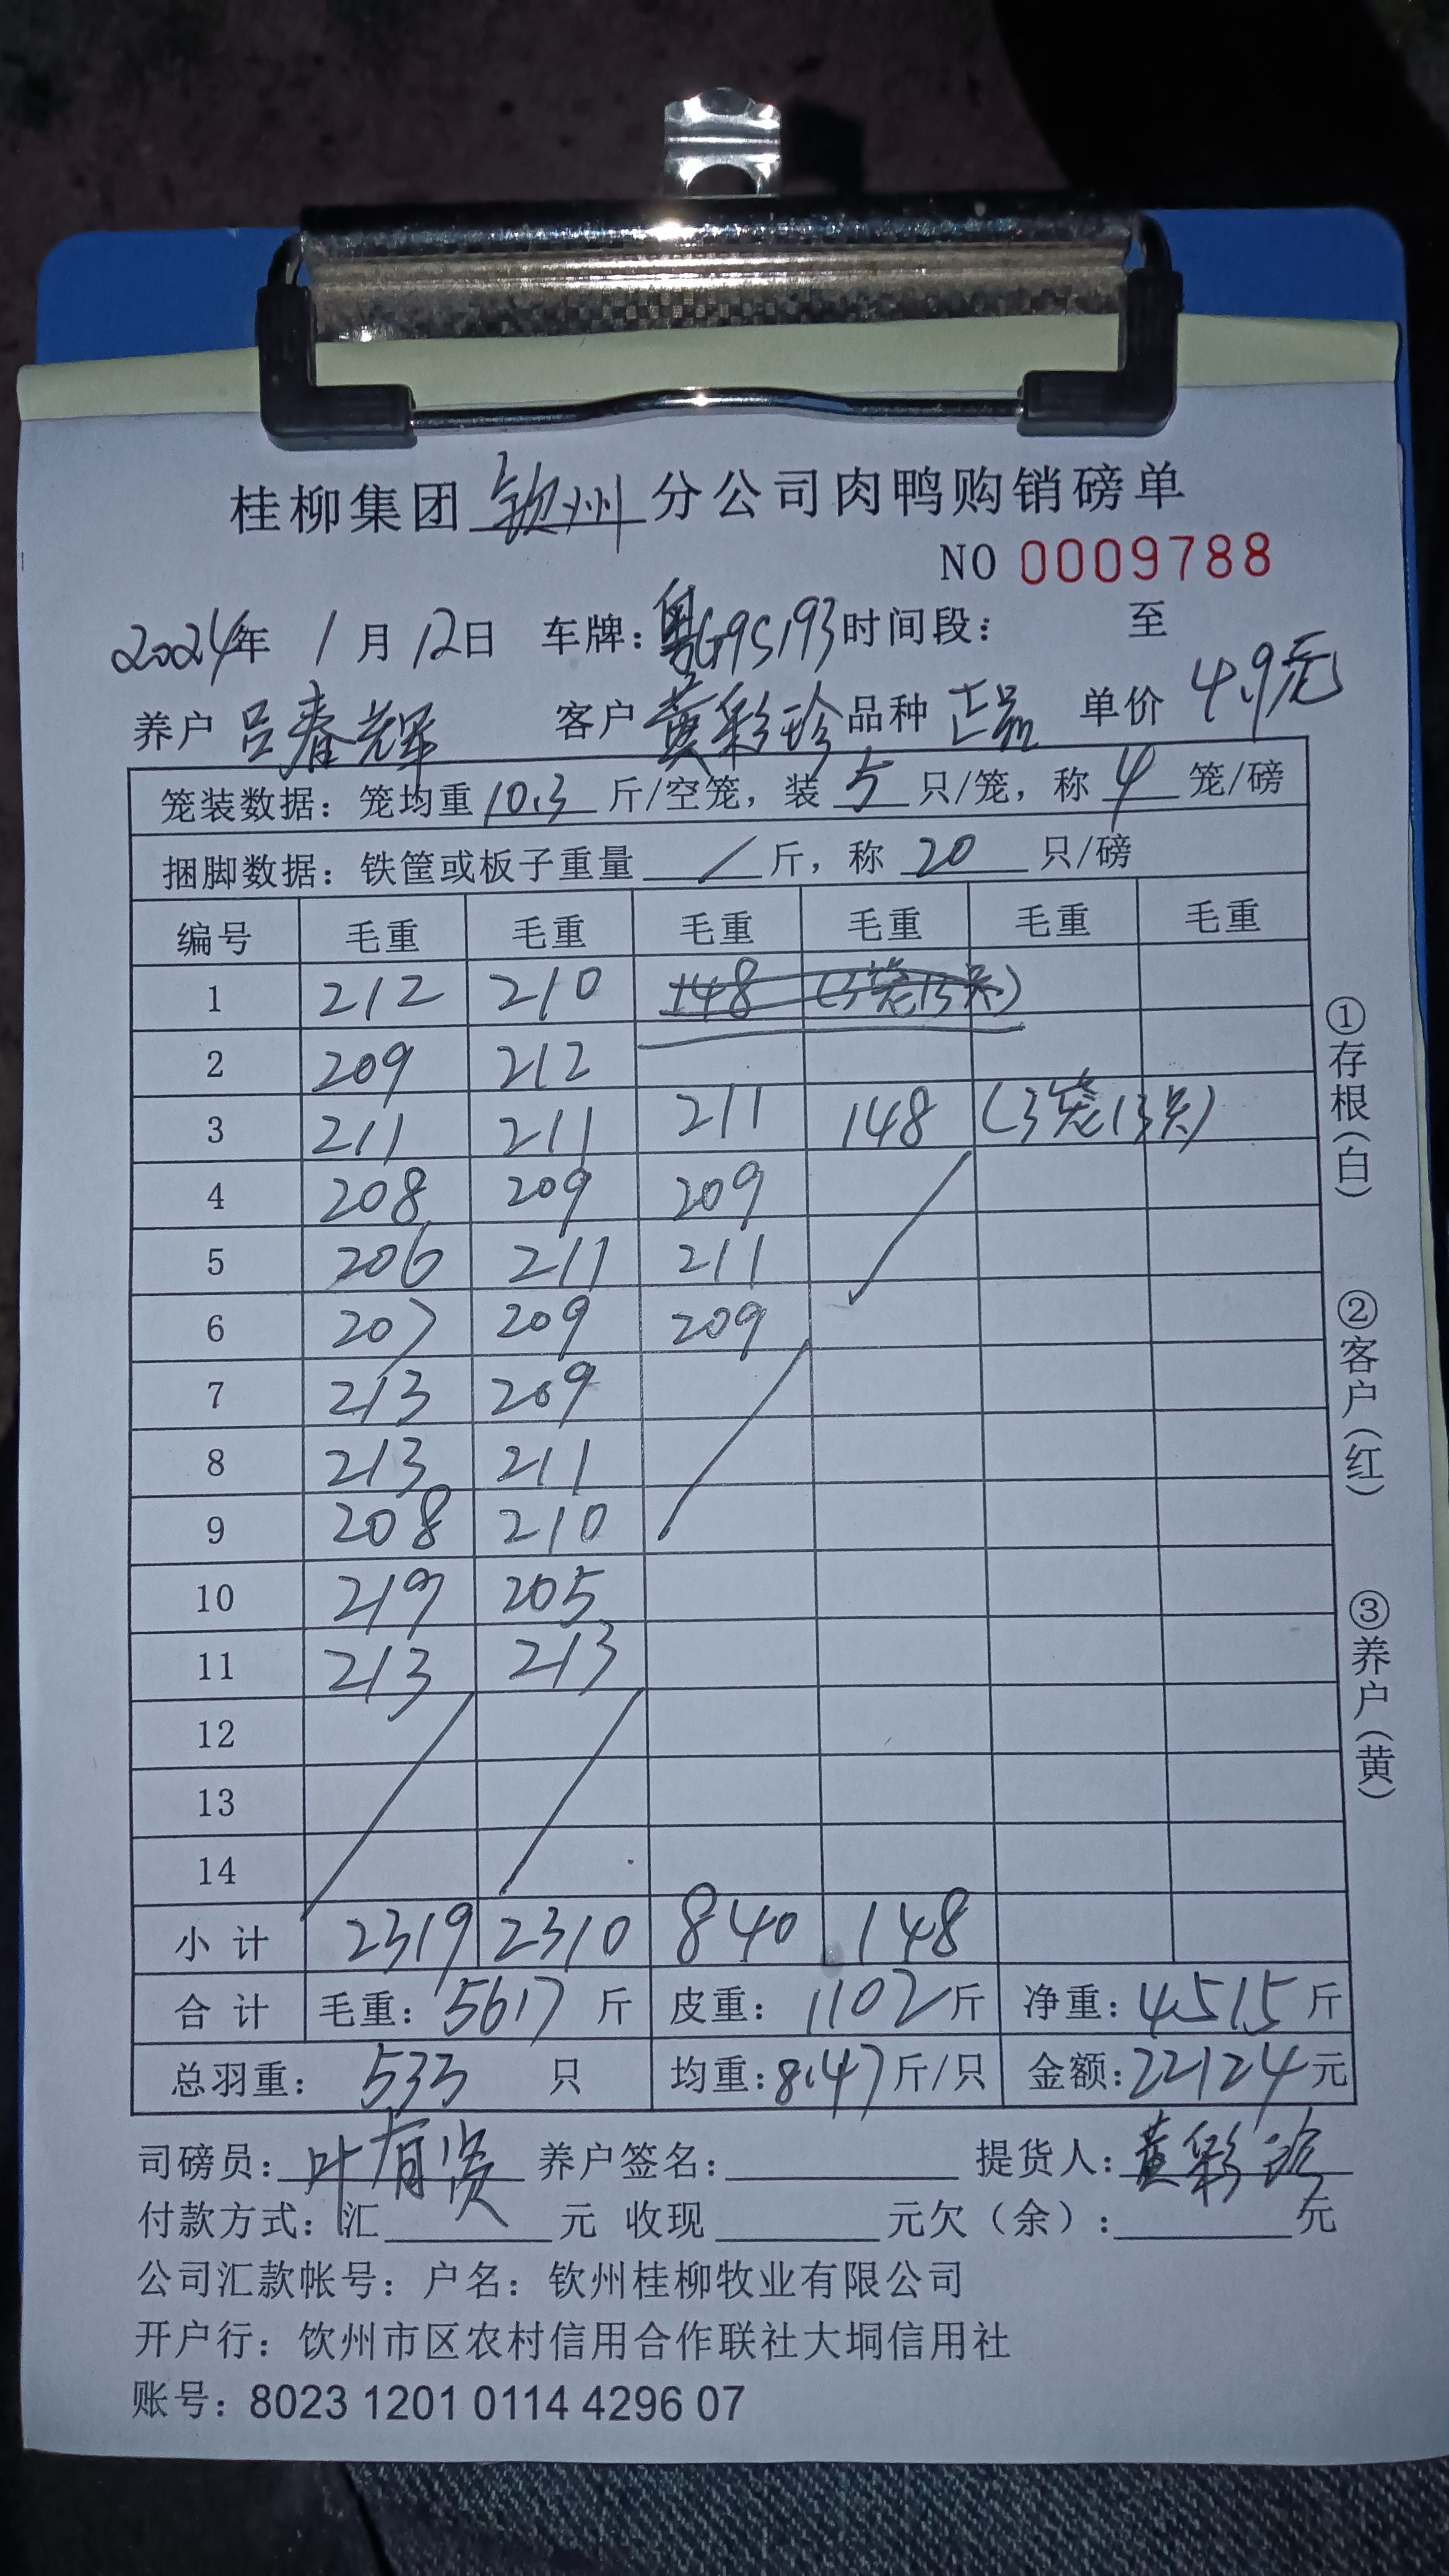 桂柳集团钦州分公司肉鸭购销磅单
NO 0009788
2024年 1月12日 车牌:粤G9S193时间段: 至
养户 吕春辉 客户 黄彩珍 品种 正品 单价 4.9元
笼装数据: 笼均重 10.3 斤/空笼, 装 5 只/笼, 称 4 笼/磅
捆脚数据: 铁筐或板子重量 / 斤, 称 20 只/磅
编号 毛重 毛重 毛重 毛重 毛重 毛重
1 212 210 148 (3笼13只)
2 209 212
3 211 211 211 148 (3笼13只)
4 208 209 209
5 206 211 211
6 207 209 209
7 213 209
8 213 211
9 208 210
10 219 205
11 213 213
12
13
14
小计 2319 2310 840 148
合计 毛重: 5617 斤 皮重: 1102斤 净重: 4515斤
总羽重: 533 只 均重: 8.47斤/只 金额: 22124元
司磅员: 叶有贤 养户签名: 提货人: 黄彩珍
付款方式: 汇 元 收现 元欠(余): 元
公司汇款帐号: 户名: 钦州桂柳牧业有限公司
开户行: 钦州市区农村信用合作联社大垌信用社
账号: 8023 1201 0114 4296 07
①存根(白)
②客户(红)
③养户(黄)